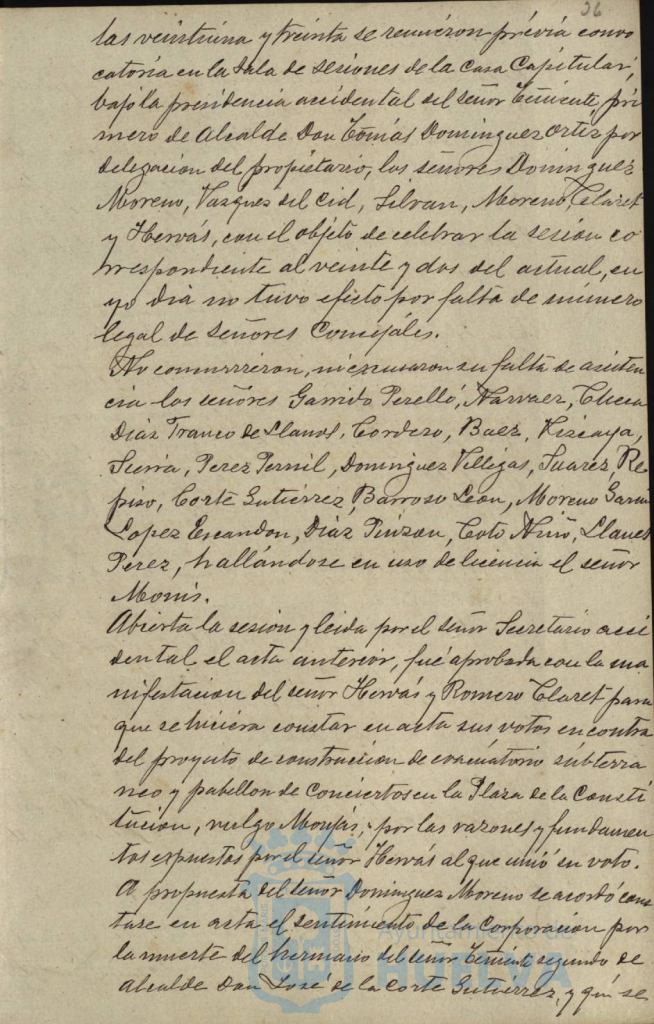 26
las veintiuna y treinta se reunieron prévia convo
catoria en la Sala de sesiones de la casa Capitular,
bajo la presidencia accidental del señor Teniente pri
mero de Alcalde Don Tomás Dominguez Ortiz por
delegacion del propietario, los señores Dominguez
Moreno, Vazquez del Cid, Silvan, Moreno, Claret
y Hervás, con el objeto de celebrar la sesion co
rrespondiente al veinte y dos del actual, cu
yo dia no tuvo efecto por falta de número
legal de señores Concejáles.
No concurrieron, ni escusaron su falta de asisten
cia los señores Garrido Perelló, Narvaez, Checa
Diáz Franco de Llanos, Cordero, Baez, Vizcaya,
Sierra, Perez Pernil, Dominguez Villegas, Suarez, Re
piso, Corte Gutiérrez, Barroso León, Moreno Garcia
Lopez Escandon, Diáz Pinzon, Coto Niño, Llanes
Perez, hallándose en uso de licencia el señor
Monis.
Abierta la sesion y leida por el señor Secretário acci
dental el acta anterior, fué aprobada con la ma
nifestacion del señor Hervás y Romero Claret para
que se hiciera constar en acta sus votos en contra
del proyecto de construccion de evacuatorio subterra
neo y pabellon de Conciertos en la Plaza de la Consti
tucion, vulgo Monjas, por las razones y fundamen
tos expuestos por el señor Hervás al que unió su voto.
A propuesta del señor Dominguez Moreno se acordó cons
tase en acta el sentimiento de la Corporacion por
la muerte del hermano del señor Teniente segundo de
Alcalde Don José de la Corte Gutiérrez, y que se
Ayuntamiento de
HUELVA